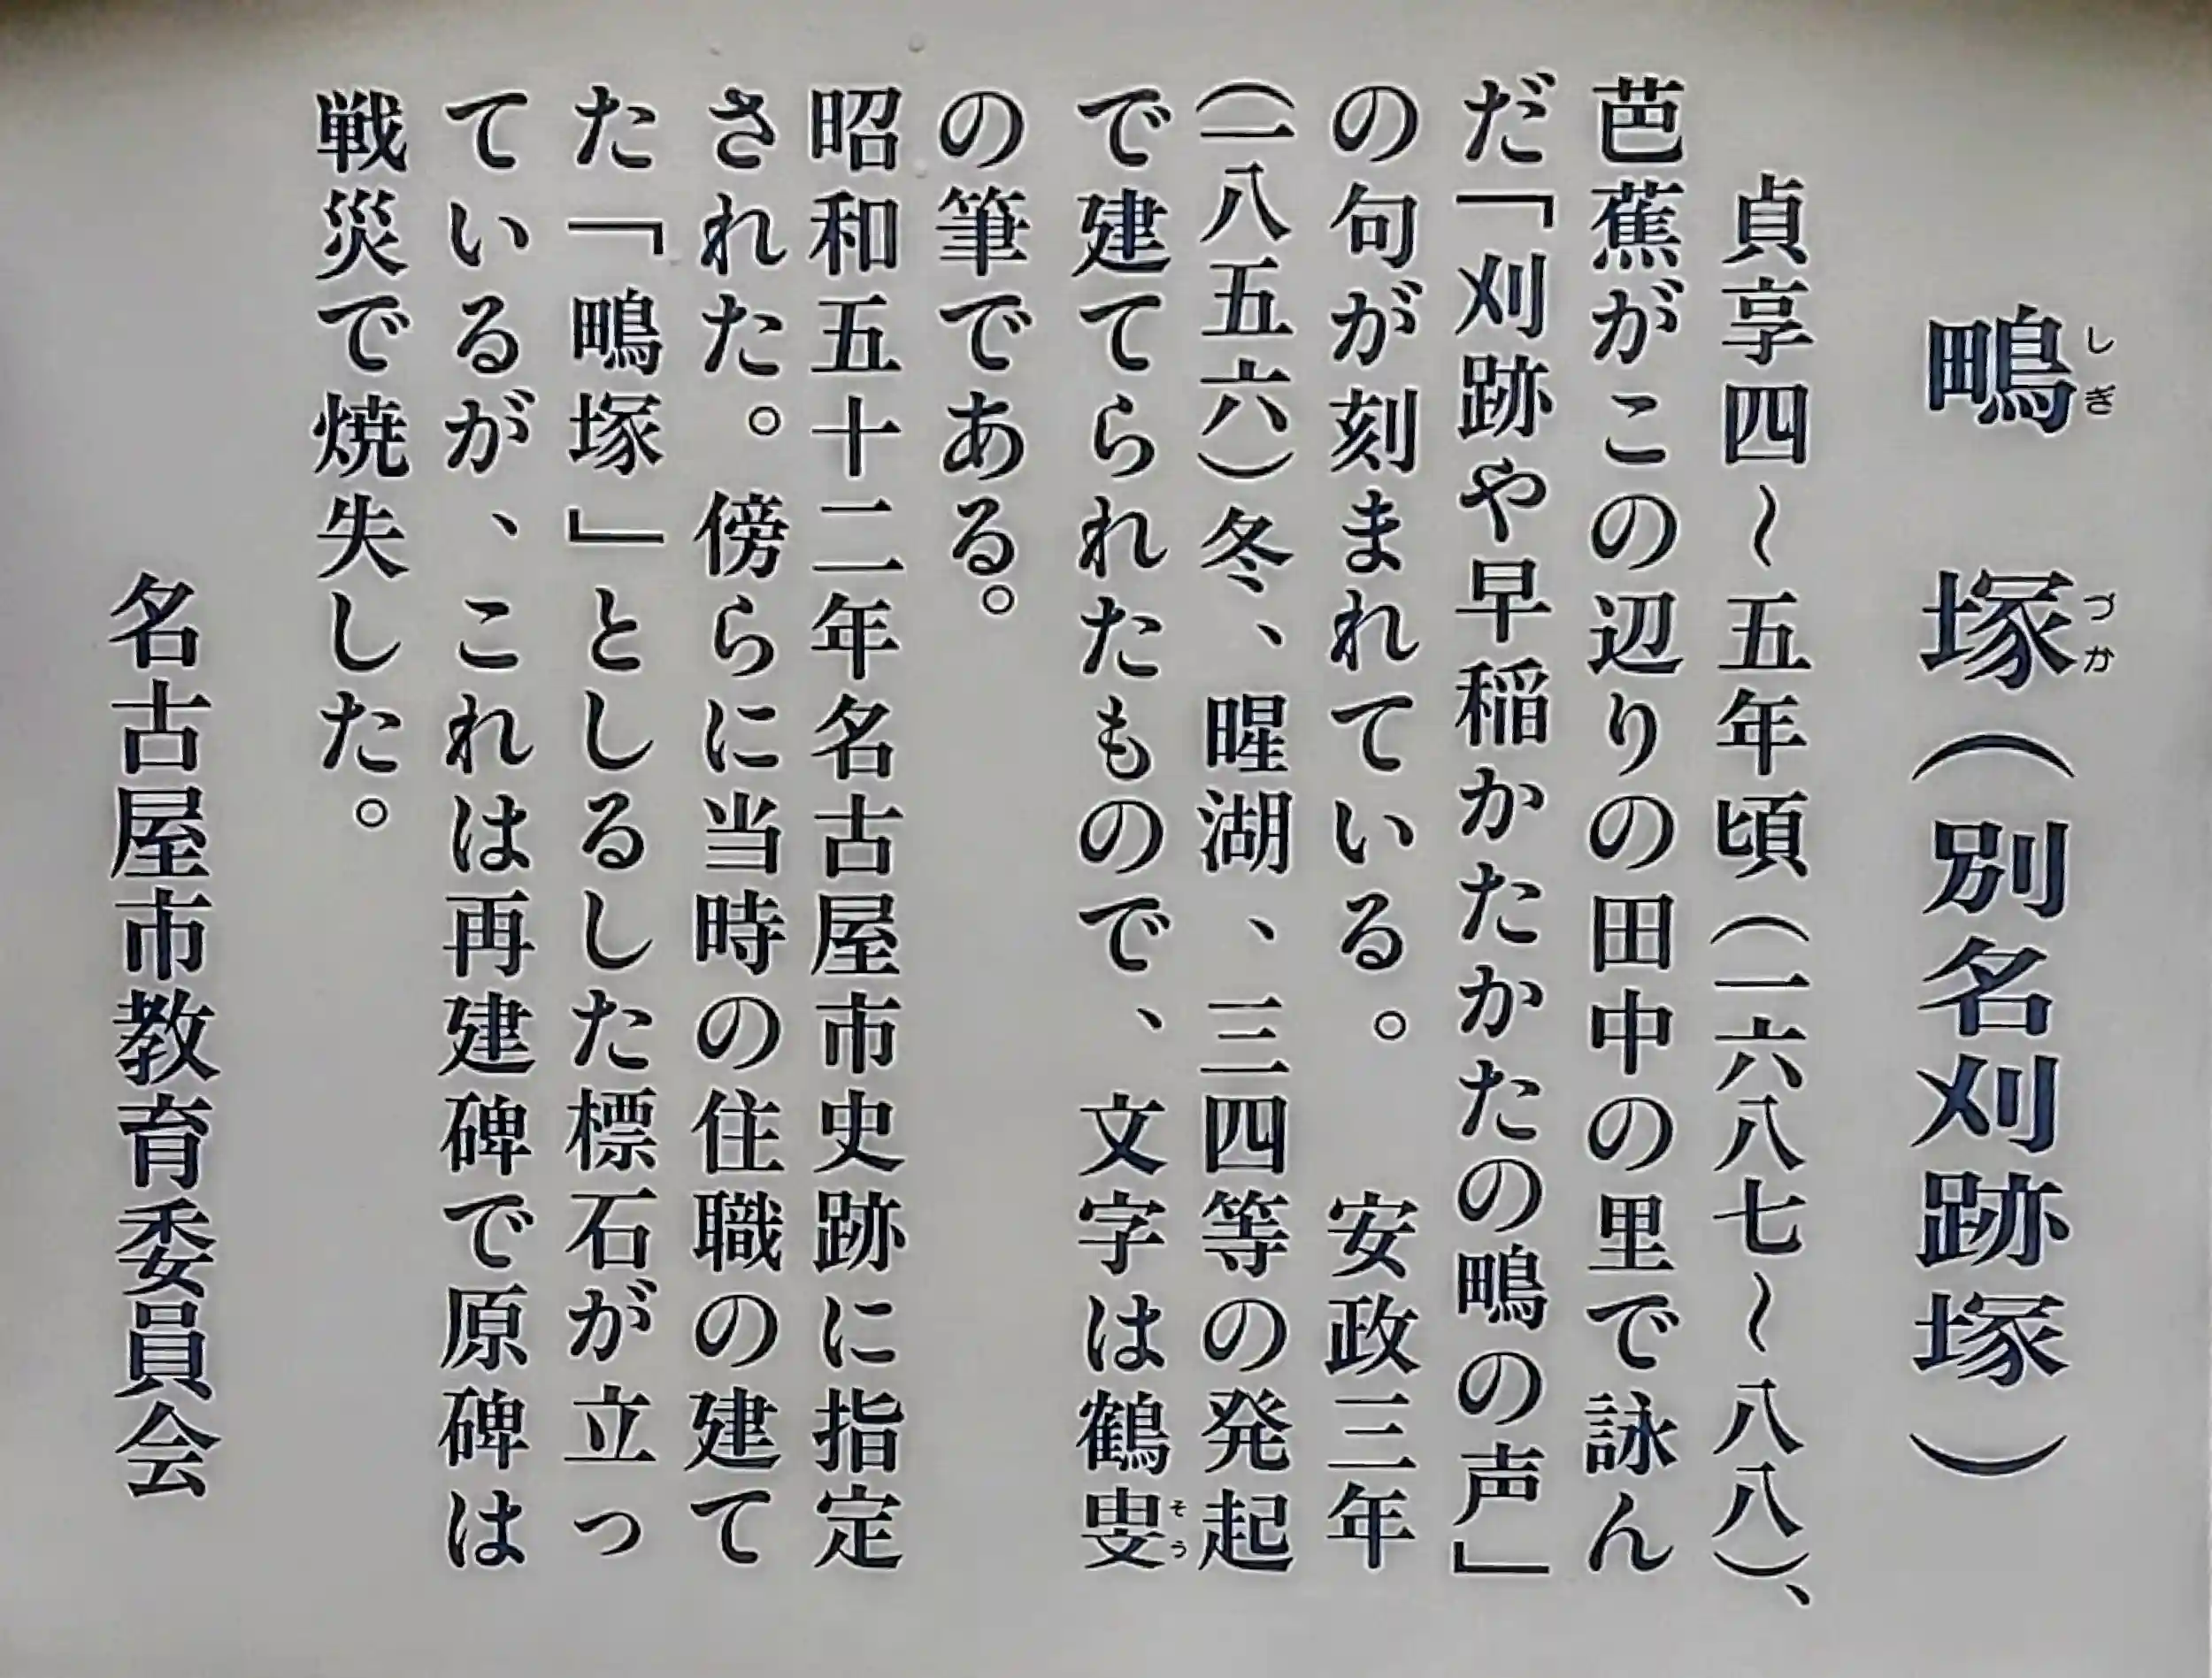 鴫塚（別名刈跡塚）
しぎづか
貞享四〜五年頃（一六八七〜八八）、
芭蕉がこの辺りの田中の里で詠ん
だ「刈跡や早稲かたかたの鴫の声」
の句が刻まれている。　安政三年
（一八五六）冬、暒湖、三四等の発起
で建てられたもので、文字は鶴叟
そう
の筆である。
昭和五十二年名古屋市史跡に指定
された。傍らに当時の住職の建て
た「鴫塚」としるした標石が立っ
ているが、これは再建碑で原碑は
戦災で焼失した。
名古屋市教育委員会